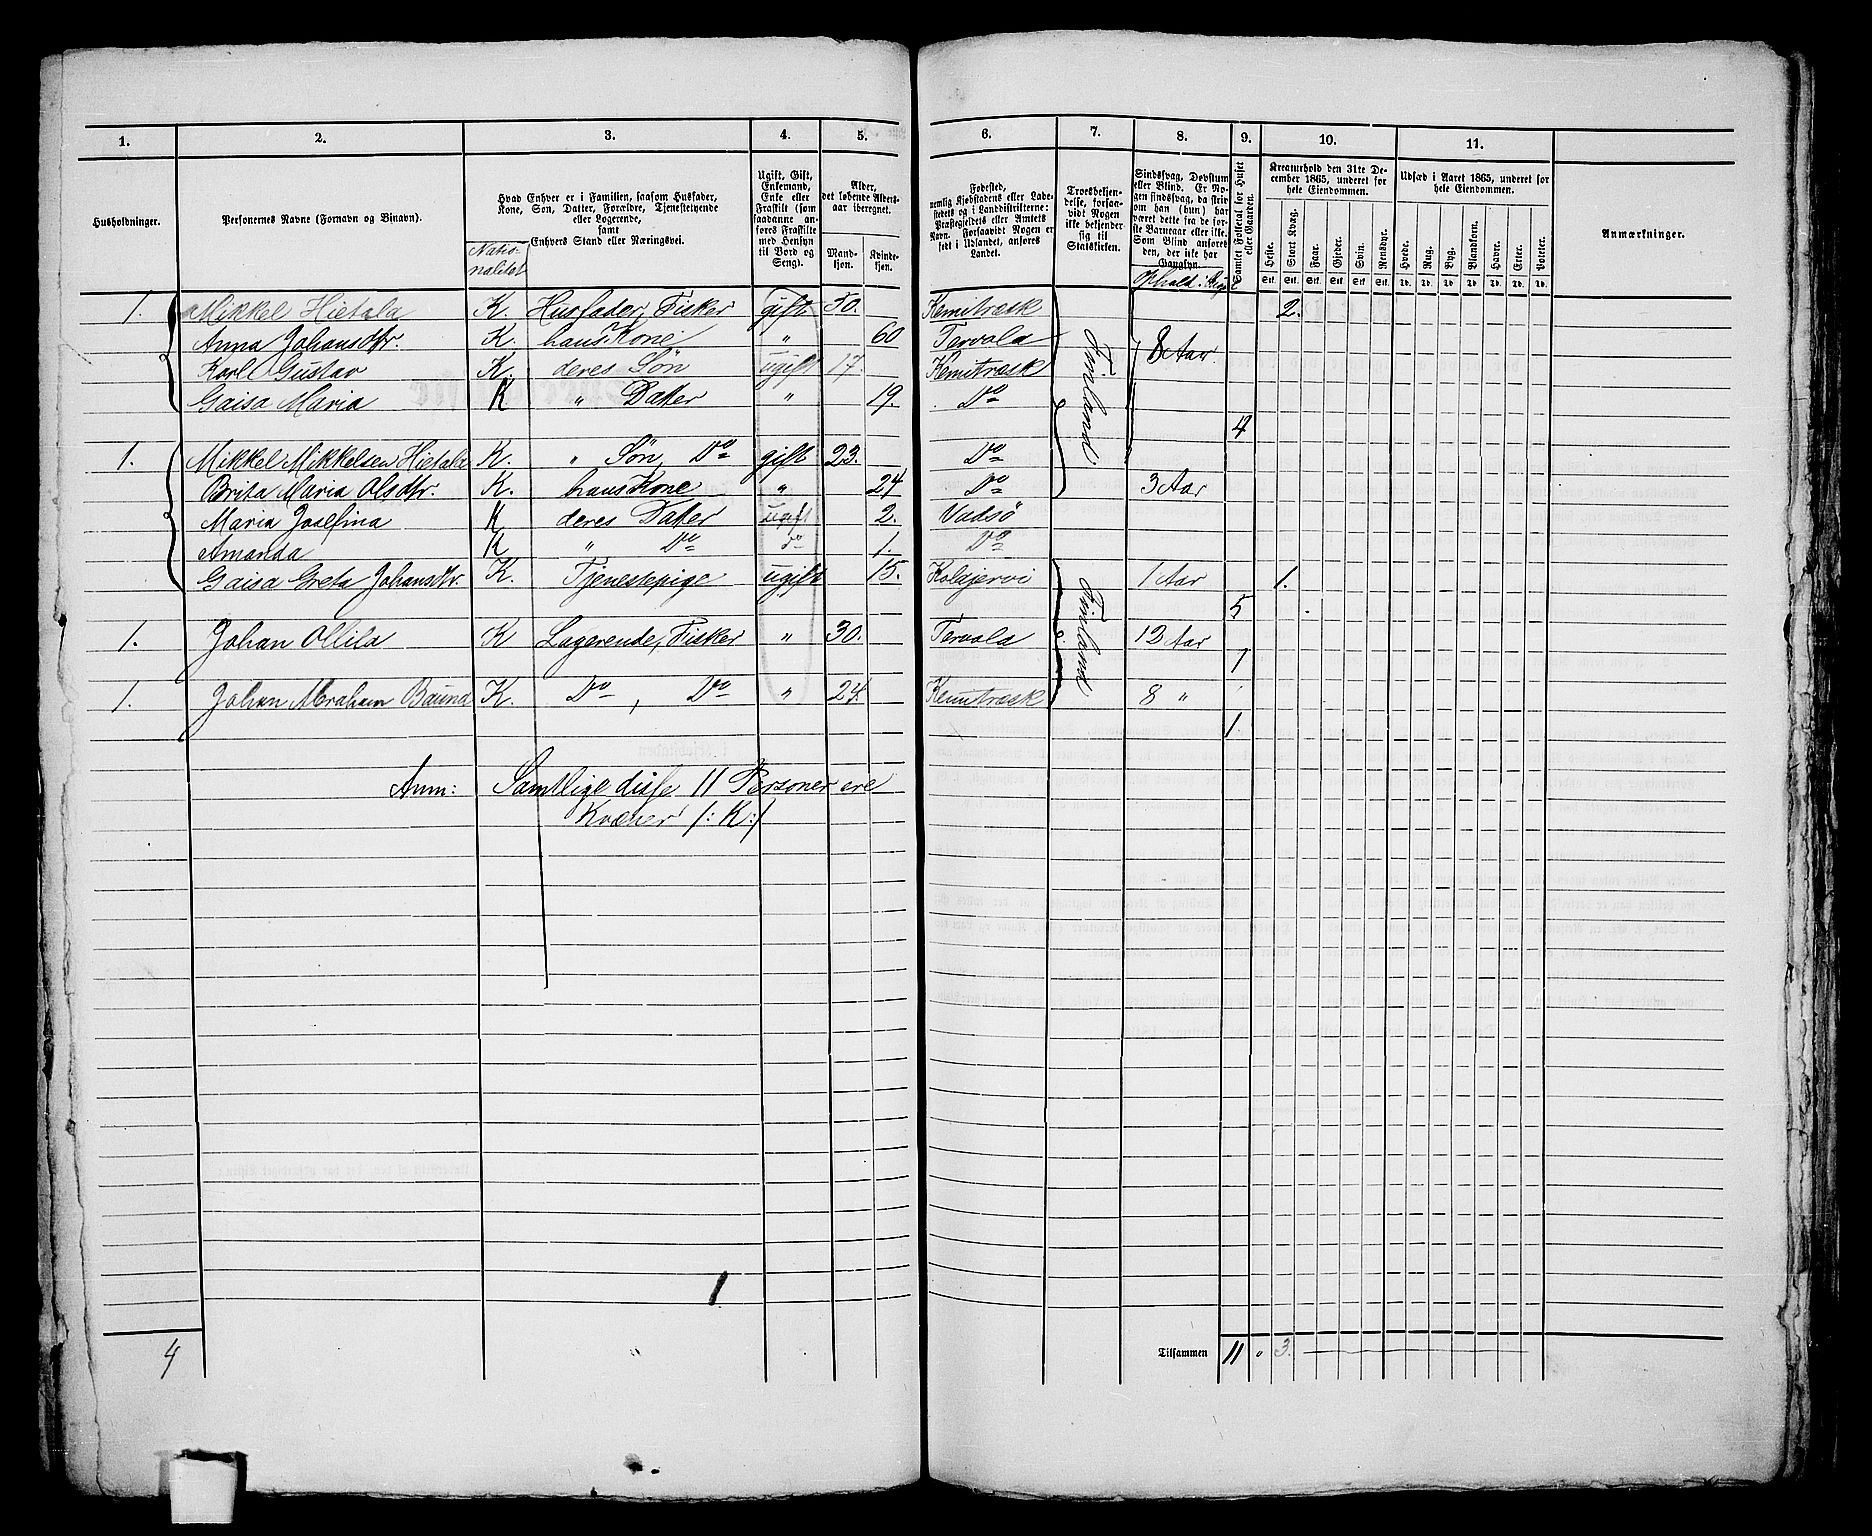 1. 2. 3. 4. 5. 6. 7. 8. 9. 10. 11.
Husholdninger.
Personernes Navne (Fornavn og Binavn).
Hvad Enhver er i Familien, saasom Husfader,
Kone, Søn, Datter, Forældre, Tjenestetyende
eller Logerende,
samt
Enhvers Stand eller Næringsvei.
Natio-
nalitet
Ugift, Gift,
Enkemand,
Enke eller
Fraskilt (som
saadanne an-
føres Fraskilte
med Hensyn
til Bord og
Seng).
Alder,
det løbende Alders-
aar iberegnet.
Mand-
kjøn.
Kvinde-
kjøn.
Fødested,
nemlig Kjøbstadens eller Lade-
stedets og i Landdistrikterne:
Præstegjeldets eller Amtets
Navn. Forsaavidt Nogen er
født i Udlandet, anføres
Landet.
Troesbekjen-
delse, forsaa-
vidt Nogen
ikke bekjender
sig til
Statskirken.
Sindssvag, Døvstum
eller Blind. Er No-
gen sindssvag, da skriv
om han (hun) har
været dette fra de før-
ste Barneaar eller ikke.
Som Blind anføres
den, der ikke har
Gangsyn.
Ophold i
Samlet Folketal for Huset
eller Gaarden.
Kreaturhold den 31te De-
cember 1865, underet for
hele Eiendommen.
Heste. Stort Kvæg. Faar. Gjeder. Svin. Rensdyr.
Stk. Stk. Stk. Stk. Stk. Stk.
Udsæd i Aaret 1865, underet for
hele Eiendommen.
Hvede. Rug. Byg. Blandkorn. Havre. Erter. Poteter.
Td. Td. Td. Td. Td. Td. Td.
Anmærkninger.
1. Mikkel Hietala K. Husfader, Fisker gift 50. Kemitræsk 2.
Anna Johansdtr. K. hans Kone " 60 Tervola 8 Aar
Karl Gustav K. deres Søn ugift 17. Kemitræsk
Gaisa Maria K " Datter " 19. Do
Finland
4
1. Mikkel Mikkelsen Hietala K. " Søn, Do gift 23. Do
Brita Maria Olsdtr. K. hans Kone " 24 Do 3 Aar
Maria Josefina K deres Datter ugift 2. Vadsö
Amanda K " Do do 1. Do
Gaisa Greta Johansdtr. K. Tjenestepige ugift 15. Kolajervi 1 Aar 1.
Finland
5
1. Johan Ollila K Logerende, Fisker " 30. Tervola 12 Aar
1
1. Johan Abraham Bauna K. Do, Do " 24. Kemitræsk 8 "
1.
Anm: Samtlige disse 11 Personer ere
Kvæner /: K :/
4
Tilsammen 11 " 3.